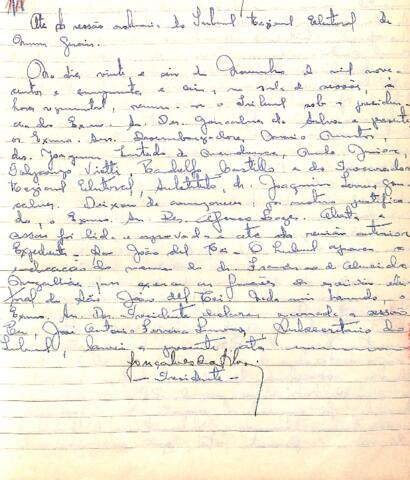 Ata da sessão ordinaria do Tribunal Regional Eleitoral de
Minas Gerais.
Ao dia vinte e seis de Novembro de mil nove-
centos e cinquenta e seis, na sala de sessões, à
hora regimental, reuniu-se o Tribunal sob a presiden-
cia do Exmo. Sr. Des. Gonçalves da Silva e presente
os Exmos. Srs. Desembargadores,
drs. Furtado de Mendonça, Junior,
Cardillo e do Procurador
Regional Eleitoral, Substituto, dr. Joaquim Gon-
salves. Deixou de comparecer, por motivo justifica-
do, o Exmo. Sr. Des. Afonso Lages. Aberta a
sessão foi lida e aprovada a ata da reunião anterior.
Expediente - São João del Rei - O Tribunal aprovou a
indicação do nome do dr. Francisco de Almeida
Magalhães, para exercer as funções de
de São João del Rei. Nada mais havendo, o
Exmo. Sr. Des. Presidente declarou encerrada a sessão.
Eu, José Antonio Pereira, Subsecretario do
Tribunal, lavrei a presente ata
Gonçalves da Silva.
- Presidente -